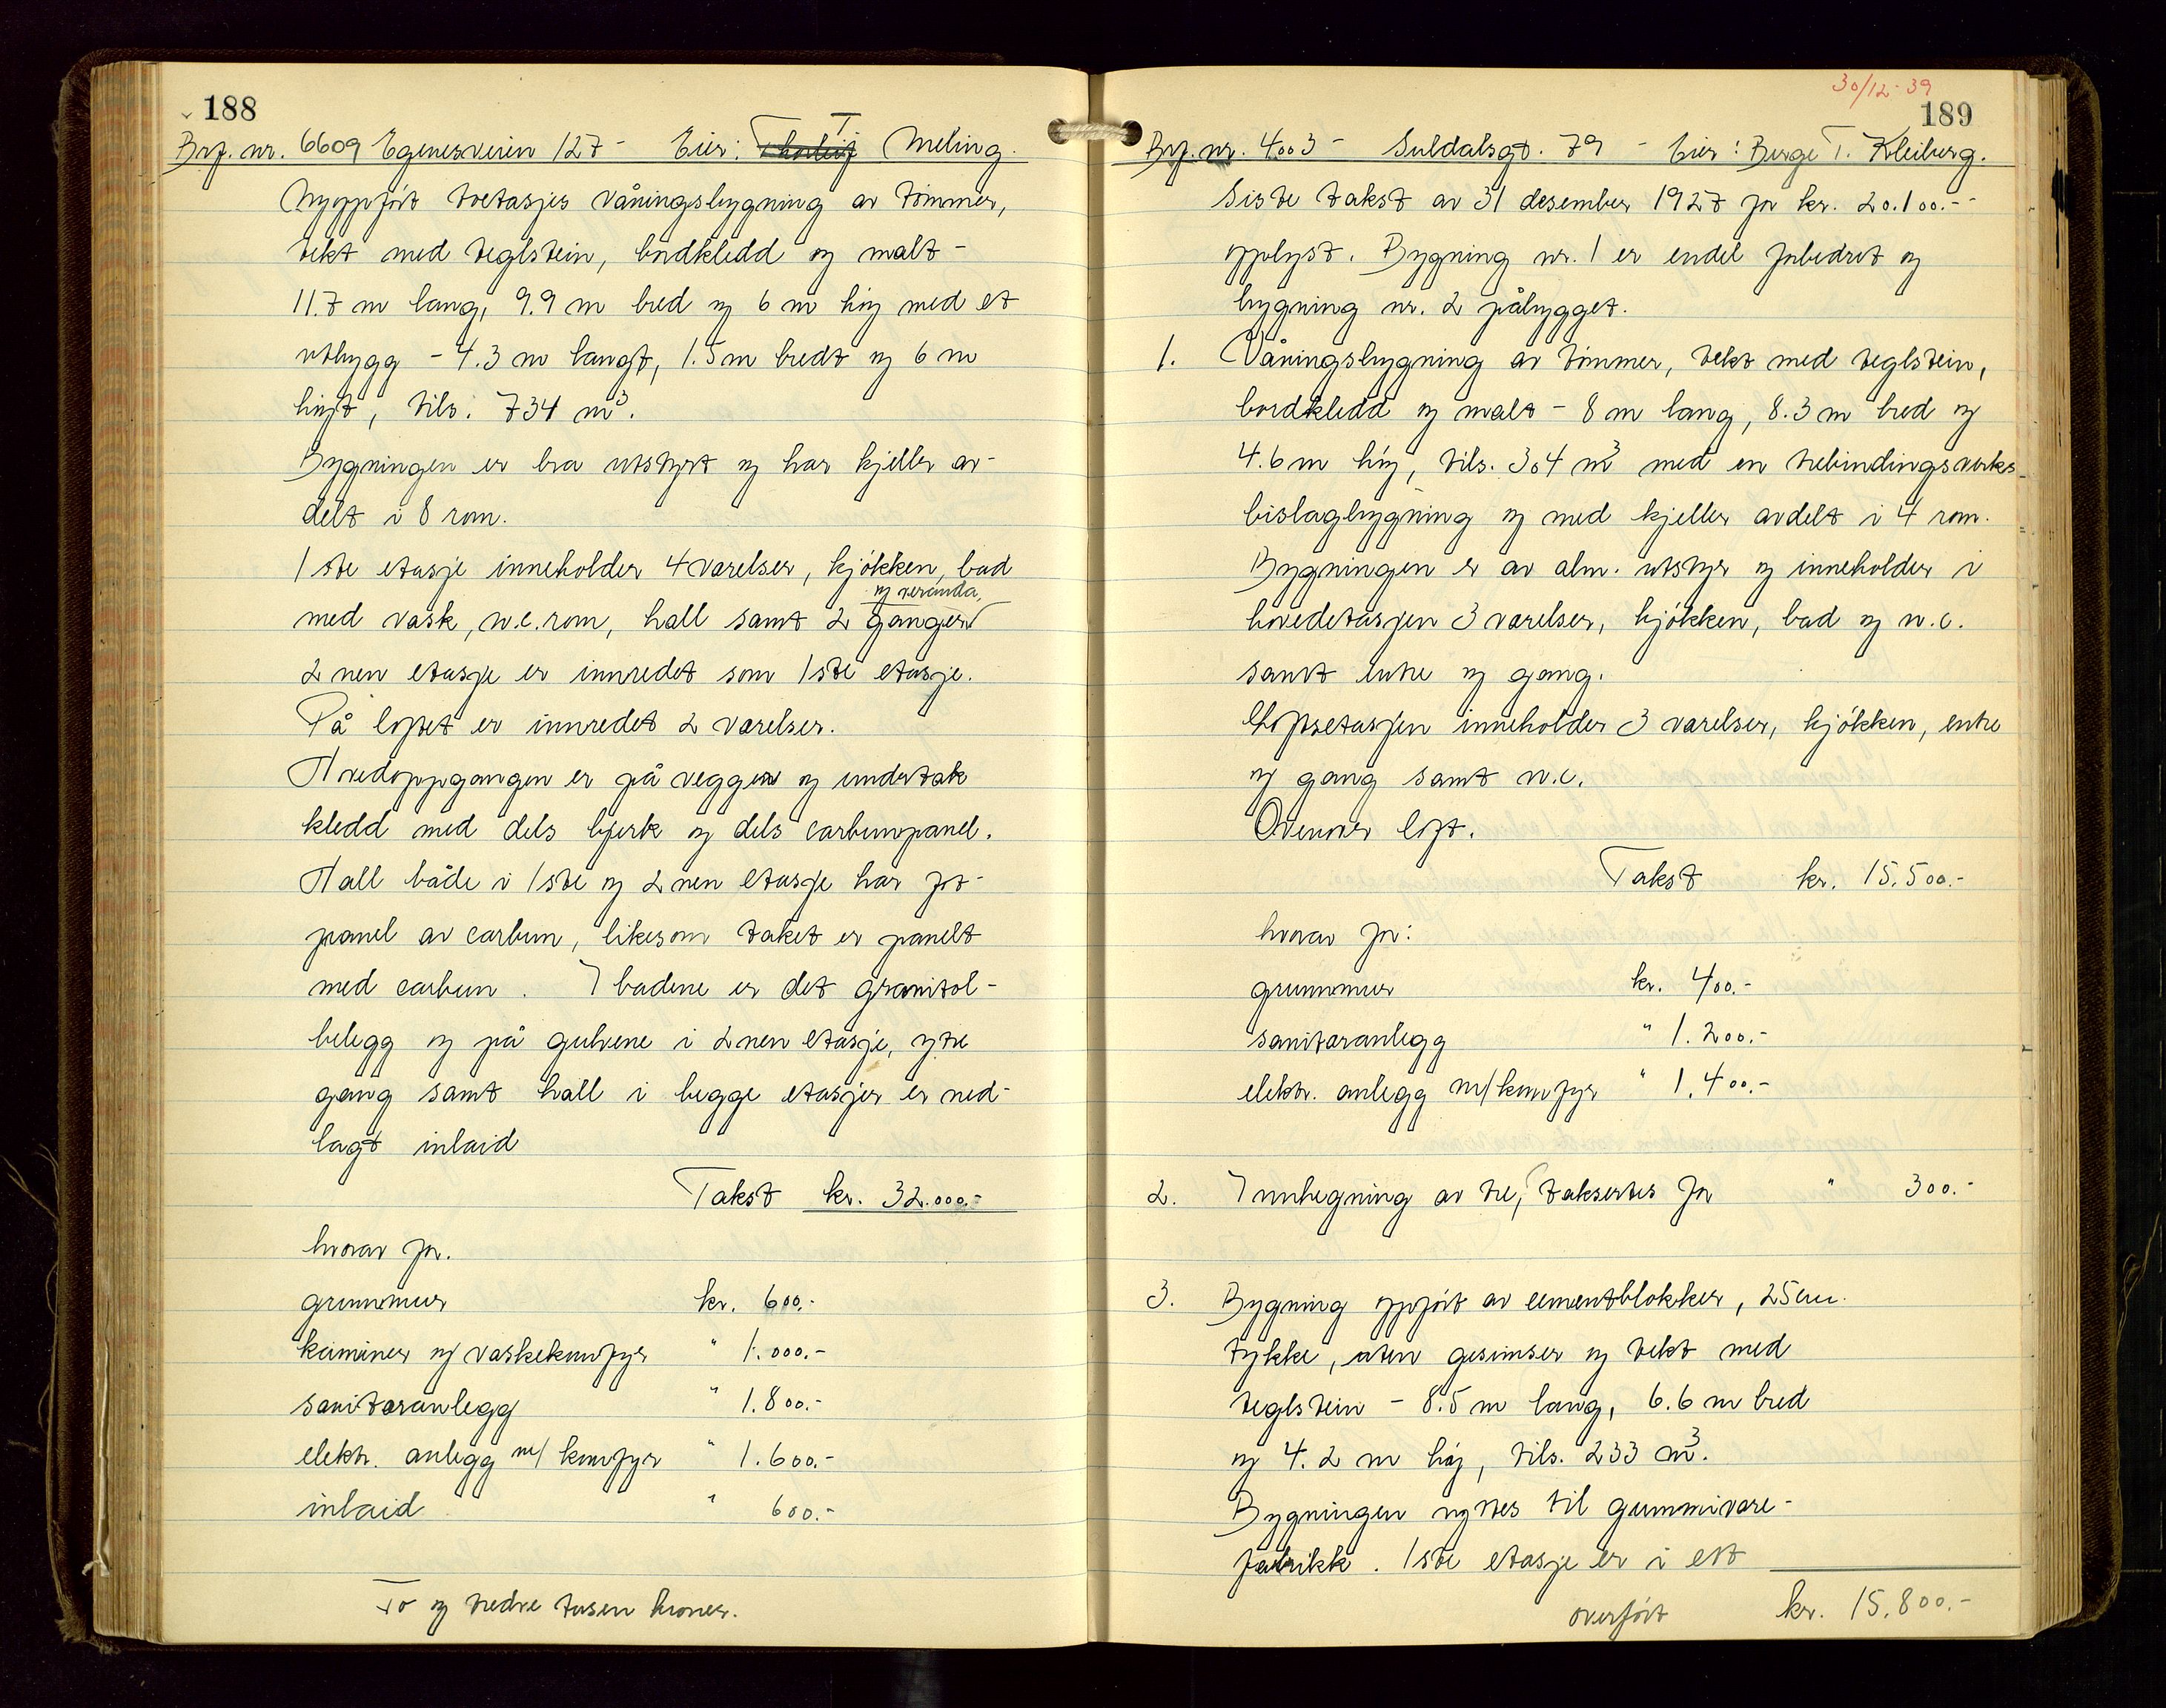 188
Brf. nr. 6609 Egenesveien 127 - Eier: T. Meling.
Nyoppført toetasjes våningsbygning av tømmer,
tekt med teglstein, bordkledd og malt -
11.7 m lang, 9.9 m bred og 6 m høy med et
utbygg - 4.3 m langt, 1.5 m bredt og 6 m
høyt, tils. 734 m³.
Bygningen er bra utstyrt og har kjeller av-
delt i 8 rom.
1ste etasje inneholder 4 værelser, kjøkken, bad
og veranda,
med vask, w.c.rom, hall samt 2 ganger
2nen etasje er innredet som 1ste etasje.
På loftet er innredet 2 værelser.
Hovedoppgangen er på veggen og undertak
kledd med dels bjerk og dels carbunpanel.
Hall både i 1ste og 2nen etasje har fot-
panel av carbun, likesom taket er panelt
med carbun. I badene er det granitol-
belegg og på gulvene i 2nen etasje, ytre
gang samt hall i begge etasjer er ned-
lagt inlaid
Takst kr. 32.000.-
hvorav for.
grunnmur kr. 600.-
kaminer og vaskekomfyr " 1.000.-
sanitæranlegg " 1.800.-
elektr. anlegg m/ komfyr " 1.600.-
inlaid " 600.-
To og tredve tusen kroner.
30/12-39
189
Brf. nr. 4003 - Suldalsgt. 79 - Eier: Berge T. Kleiberg.
Siste takst av 31 desember 1927 for kr. 20.100.--
opplyst. Bygning nr. 1 er endel forbedret og
bygning nr. 2 påbygget.
1. Våningsbygning av tømmer, tekt med teglstein,
bordkledd og malt - 8 m lang, 8.3 m bred og
4.6 m høy, tils. 304 m³ med en trebindingsverks-
bislagbygning og med kjeller avdelt i 4 rom.
Bygningen er av alm. utstyr og inneholder i
hovedetasjen 3 værelser, kjøkken, bad og w.c.
samt entre og gang.
Loftsetasjen inneholder 3 værelser, kjøkken, entre
og gang samt w.c.
Ovenover loft.
Takst kr. 15.500.-
hvorav for:
grunnmur kr. 400.-
sanitæranlegg " 1.200.-
elektr. anlegg m/komfyr " 1.400.-
2. Innhegning av tre, taksertes for " 300.-
3. Bygning oppført av cementblokker, 25 cm.
tykke, uten gesimser og tekt med
teglstein - 8.5 m lang, 6.6 m bred
og 4.2 m høy, tils. 233 m³.
Bygningen nyttes til gummivare-
fabrikk. 1ste etasje er i ett
overført kr. 15.800.-